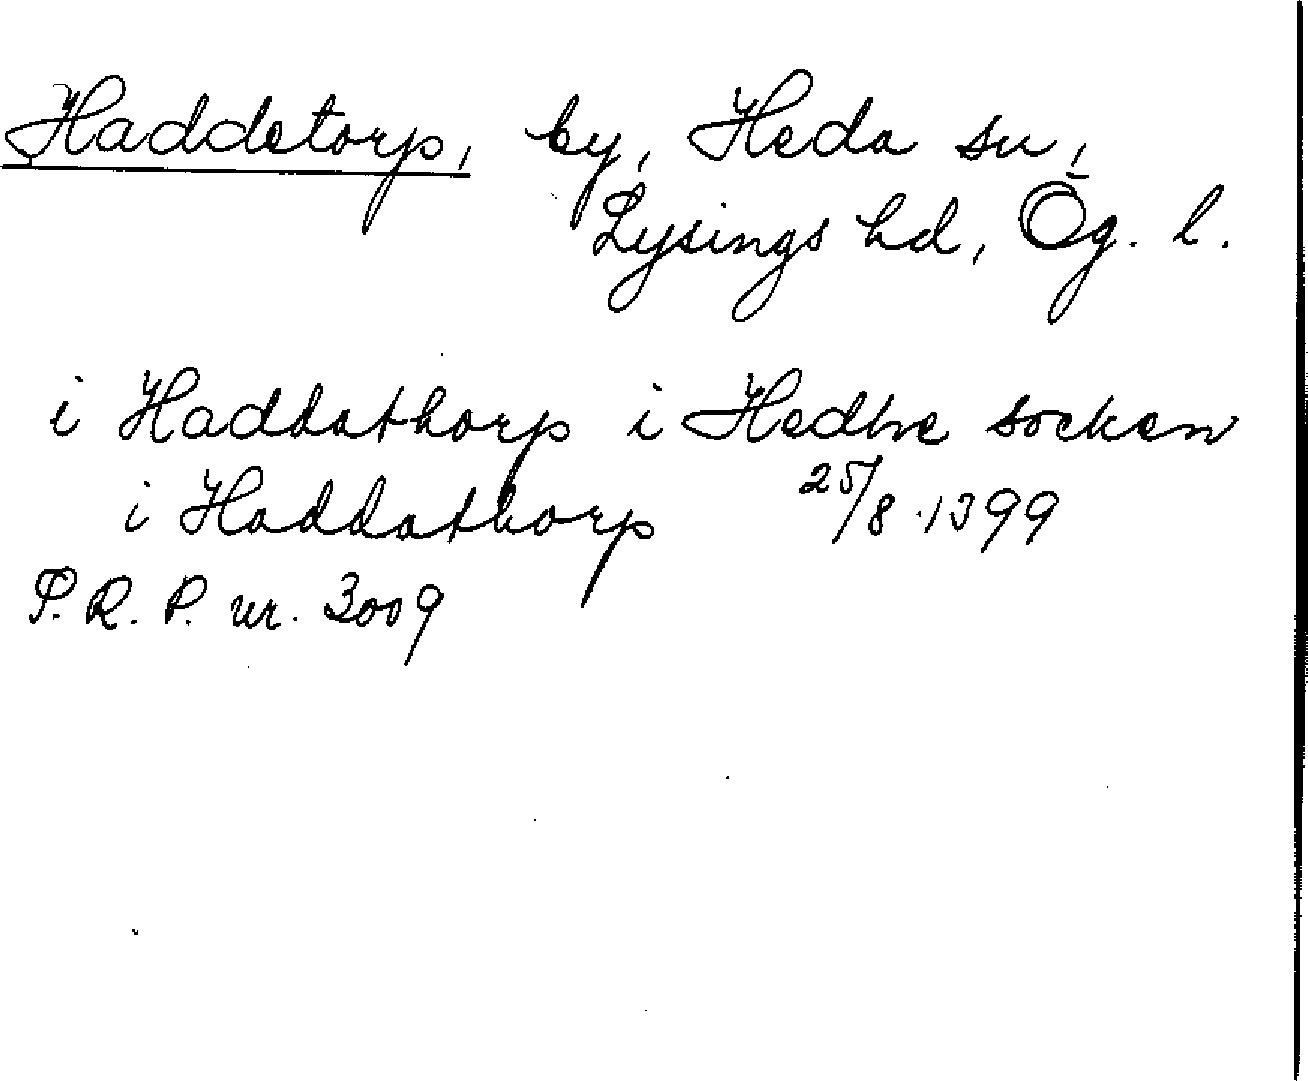 Haddetorp, by, Heda sn,
Lysings hd, Ög. l.
i Haddathorp i Hedhe socken
i Haddathorp 25/8 1399
P. R. P. nr. 3009